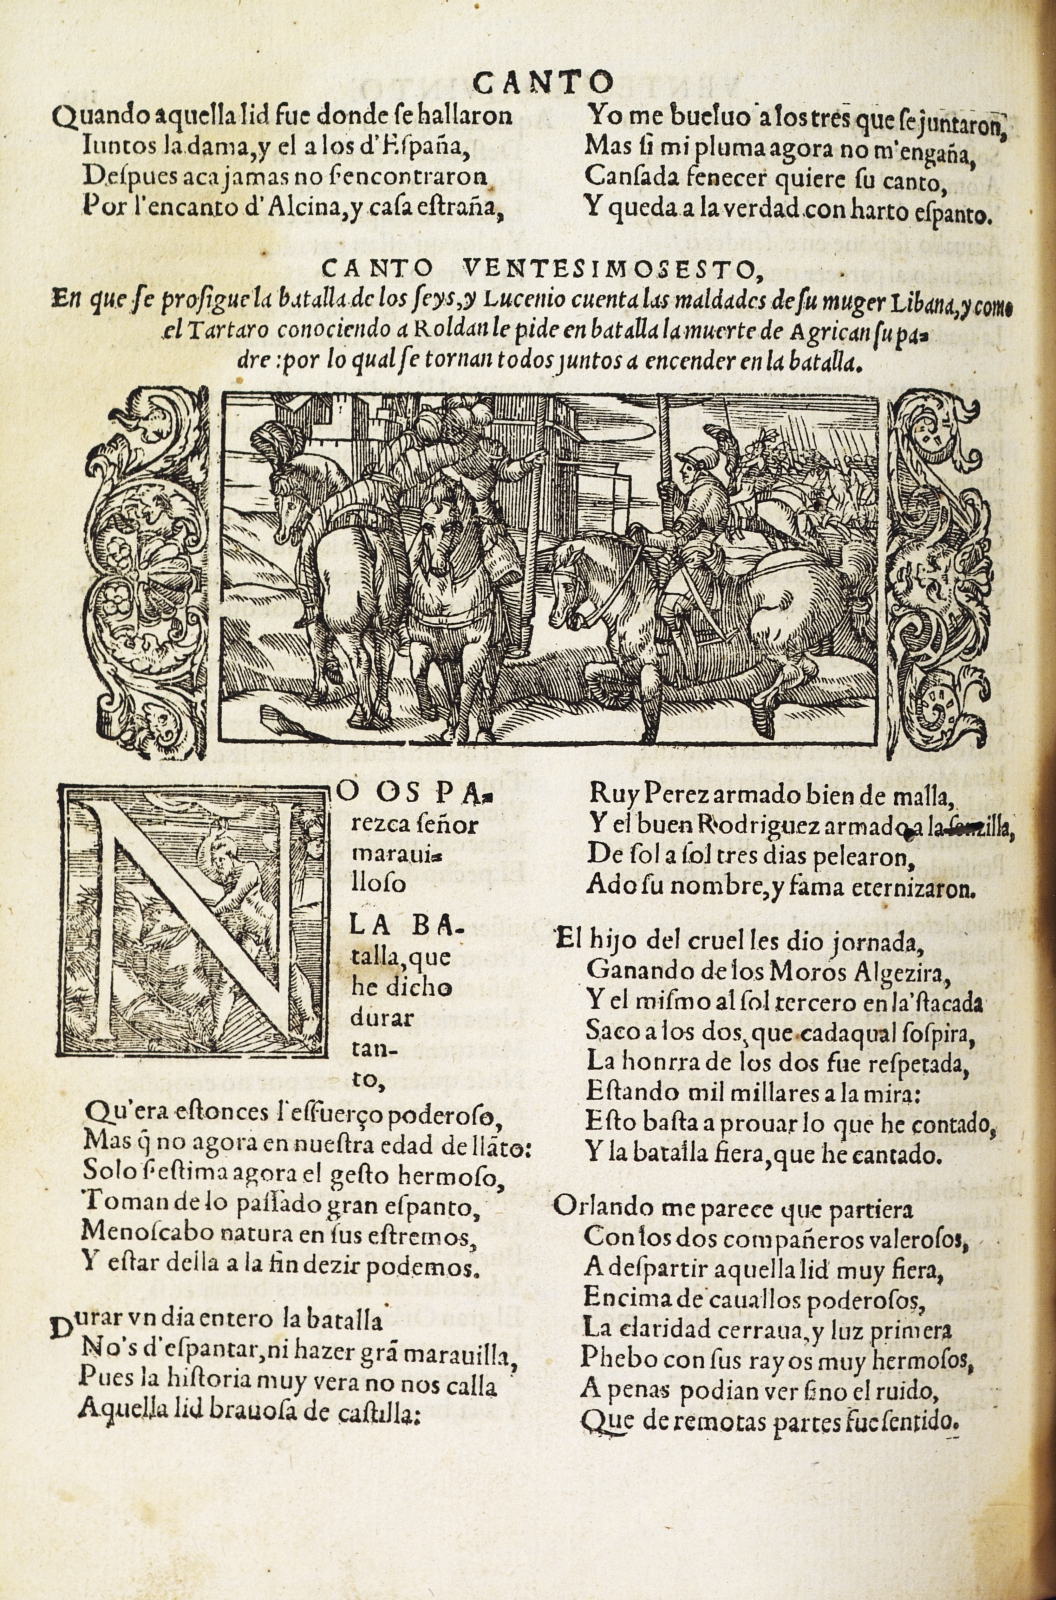 CANTO
Quando aquella lid fue donde se hallaron
Iuntos la dama, y el a los d'España,
Despues aca jamas no s'encontraron
Por l'encanto d'Alcina, y casa estraña,
Yo me bueluo a los tres que se juntaron,
Mas si mi pluma agora no m'engaña,
Cansada fenecer quiere su canto,
Y queda a la verdad con harto espanto.
CANTO VENTESIMOSESTO,
En que se prosigue la batalla de los seys, y Lucenio cuenta las maldades de su muger Libana, y como
el Tartaro conociendo a Roldan le pide en batalla la muerte de Agrican su pa-
dre: por lo qual se tornan todos juntos a encender en la batalla.
NO OS PA-
rezca señor
maraui-
lloso
LA BA-
talla, que
he dicho
durar
tan-
to,
Qu'era estonces l'esfuerço poderoso,
Mas q̃ no agora en nuestra edad de llãto:
Solo s'estima agora el gesto hermoso,
Toman de lo passado gran espanto,
Menoscabo natura en sus estremos,
Y estar della a la fin dezir podemos.
Durar vn dia entero la batalla
No's d'espantar, ni hazer grã marauilla,
Pues la historia muy vera no nos calla
Aquella lid brauosa de castilla:
Ruy Perez armado bien de malla,
Y el buen Rodriguez armado a la senzilla,
De sol a sol tres dias pelearon,
Ado su nombre, y fama eternizaron.
El hijo del cruel les dio jornada,
Ganando de los Moros Algezira,
Y el mismo al sol tercero en la'stacada
Saco a los dos, que cadaqual sospira,
La honrra de los dos fue respetada,
Estando mil millares a la mira:
Esto basta a prouar lo que he contado,
Y la batalla fiera, que he cantado.
Orlando me parece que partiera
Con los dos compañeros valerosos,
A despartir aquella lid muy fiera,
Encima de cauallos poderosos,
La claridad cerraua, y luz primera
Phebo con sus rayos muy hermosos,
A penas podian ver sino el ruido,
Que de remotas partes fue sentido.